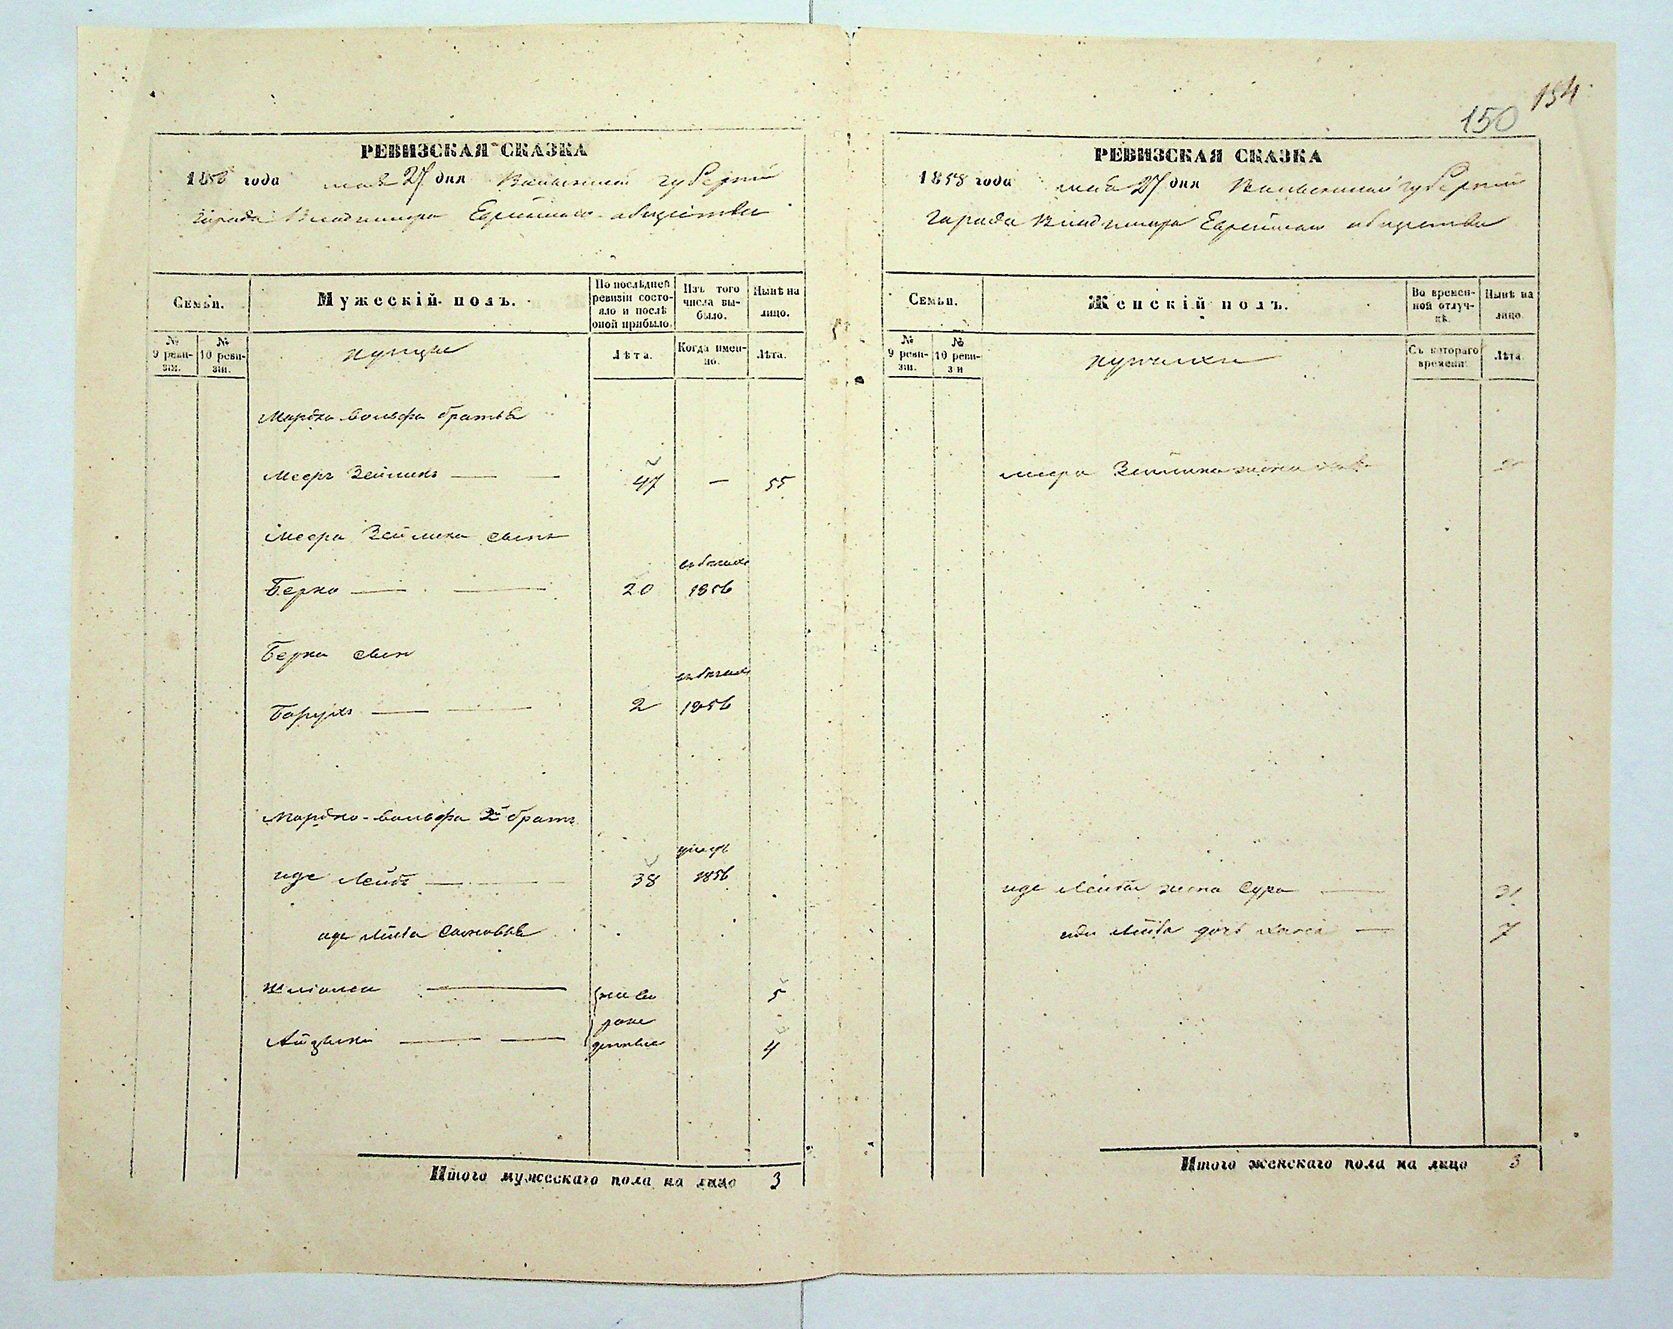 154
150
РЕВИЗСКАЯ СКАЗКА
1858 года мая 27 дня Волынской губернии
города Владимира Еврейского общества
Семьи.
Мужескій полъ.
По послѣдней ревизіи состояло и послѣ оной прибыло.
Изъ того числа выбыло.
Нынѣ на лицо.
№ 9 ревизіи.
№ 10 ревизіи.
купцы
Лѣта.
Когда именно.
Лѣта.
Мордко Вольфа братья
Мееръ Зейликъ 47 — 55
Меера Зейлика сынъ
Берко 20 1856
Берка сынъ
Борухъ 2 1856
Мордко-Вольфа 2й братъ
Иде Лейба 38 1856
Иде Лейба сыновья
Шліома 5
Айзыкъ 4
Итого мужескаго пола на лицо 3
РЕВИЗСКАЯ СКАЗКА
1858 года мая 27 дня Волынской губернии
города Владимира Еврейского общества
Семьи.
Женскій полъ.
Во временной отлучкѣ.
Нынѣ на лицо.
№ 9 ревизіи.
№ 10 ревизи
купчихи
Съ котораго времени.
Лѣта.
Меера Зейлика жена
Иде Лейбы жена Сура
Иде Лейба дочь 7
Итого женскаго пола на лицо 3